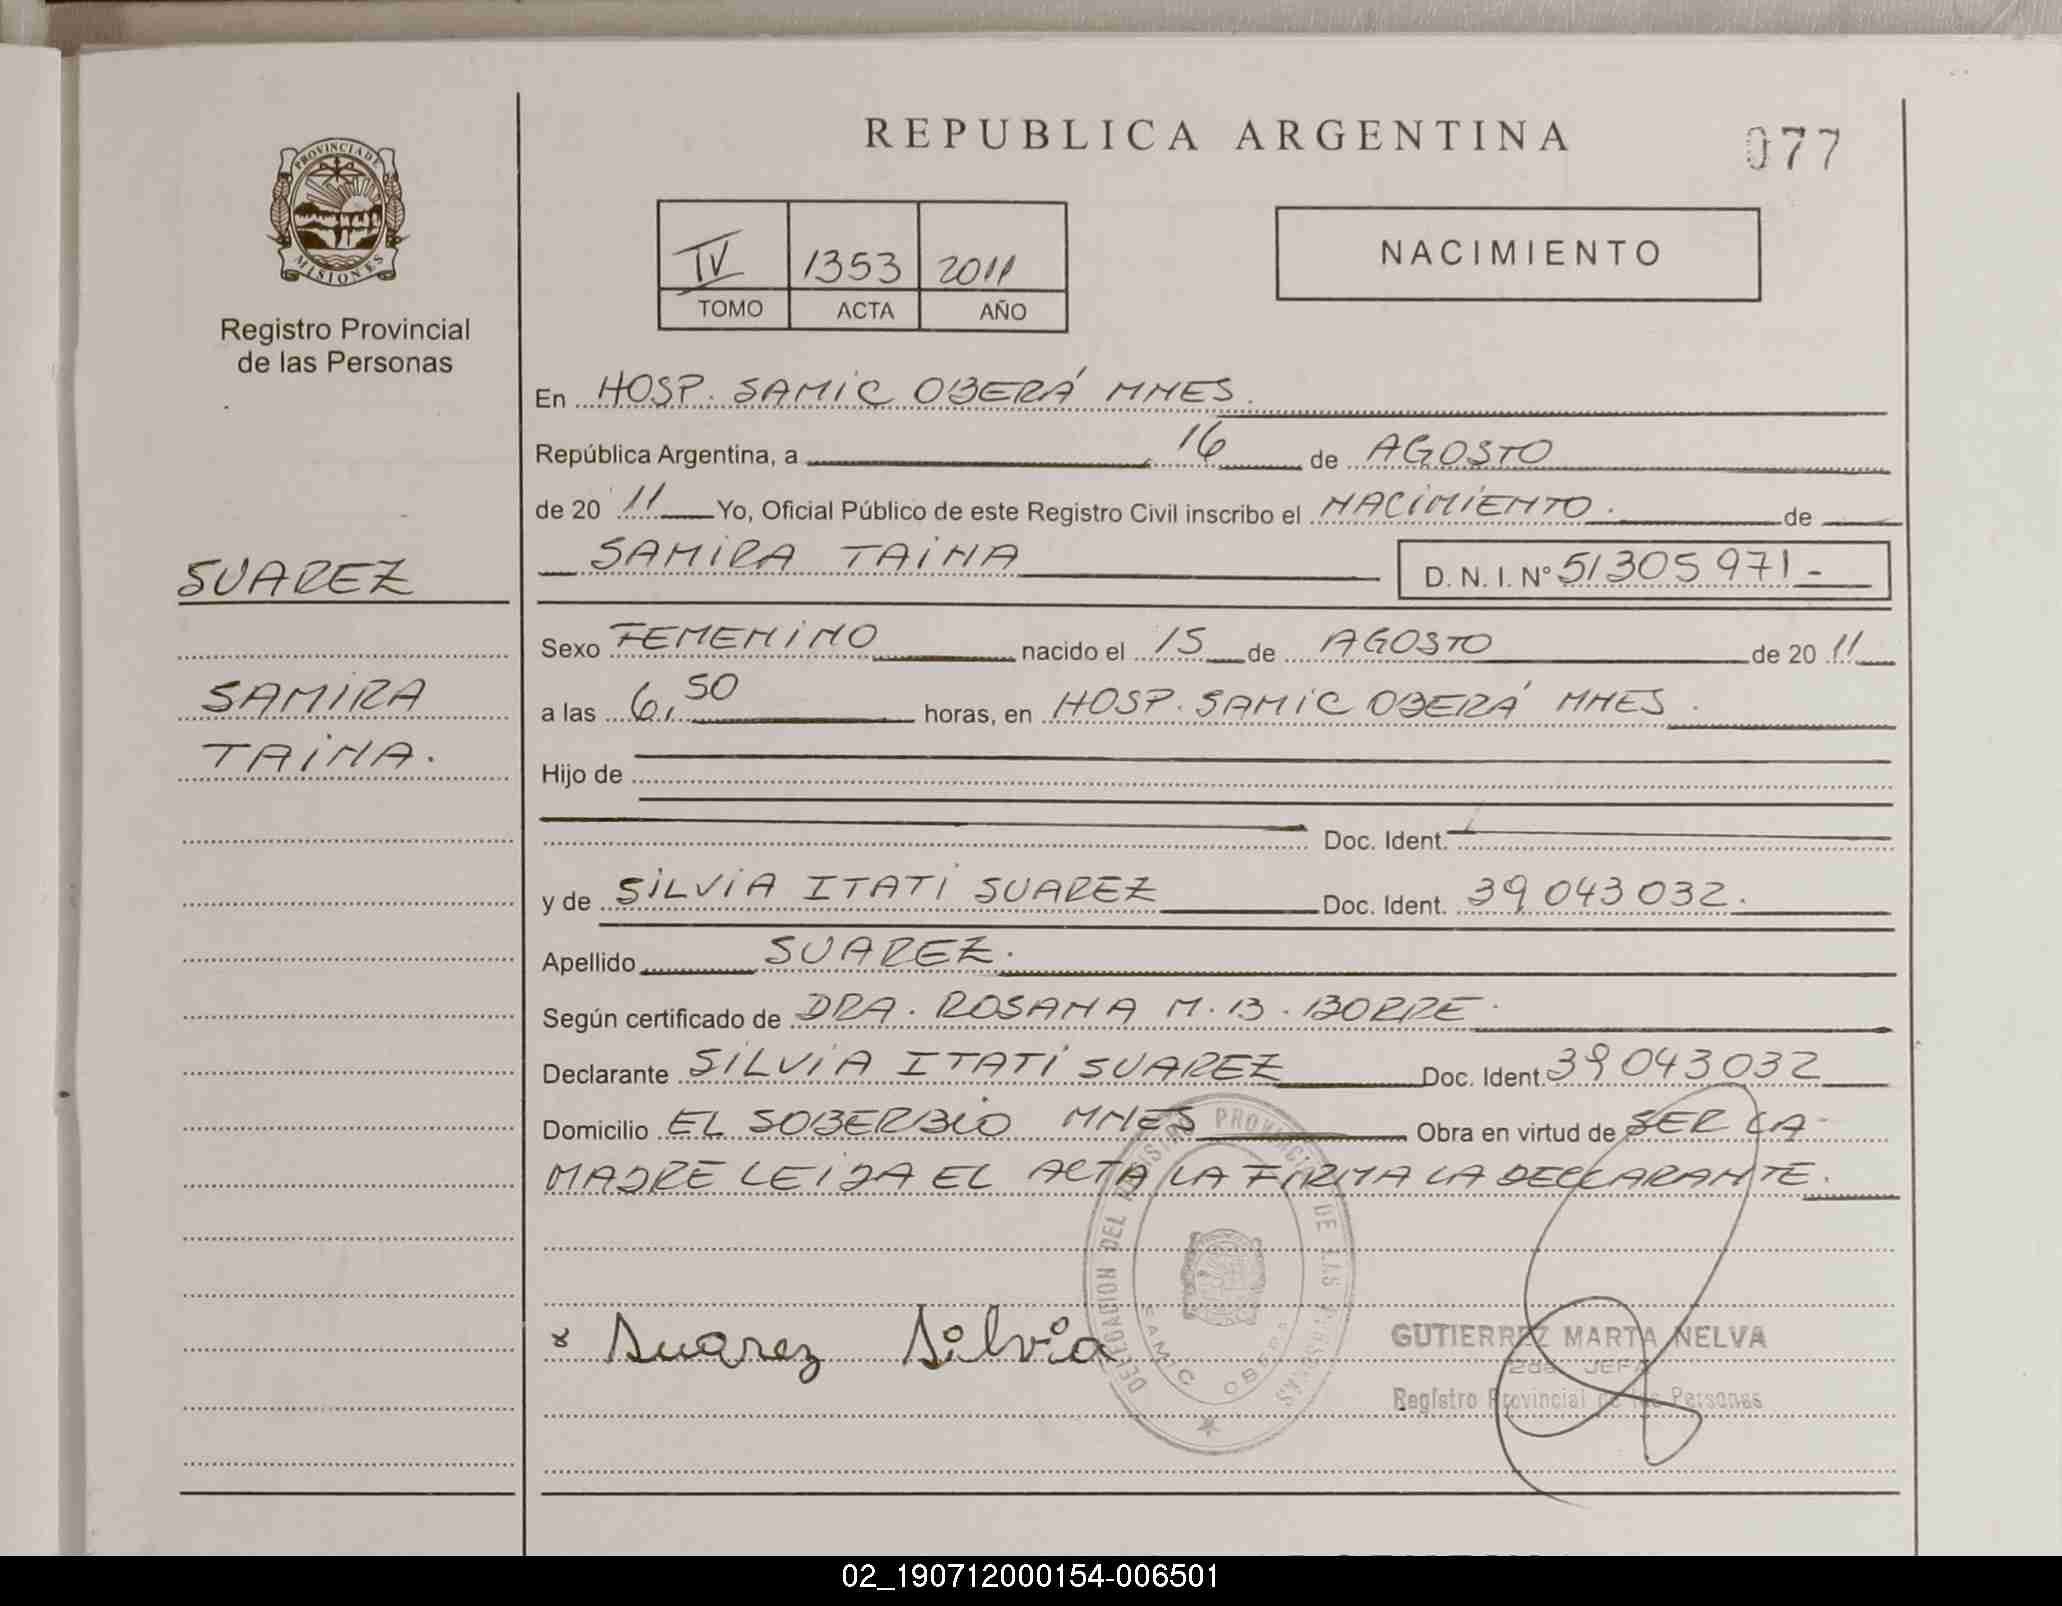 REPUBLICA ARGENTINA
077
PROVINCIA DE MISIONES
Registro Provincial
de las Personas
IV 1353 2011
TOMO ACTA AÑO
NACIMIENTO
SUAREZ
SAMIRA
TAINA.
En HOSP. SAMIC OBERÁ MNES.
República Argentina, a 16 de AGOSTO
de 20 11 Yo, Oficial Público de este Registro Civil inscribo el NACIMIENTO. de
SAMIRA TAINA D. N. I. N° 51305971-
Sexo FEMENINO nacido el 15 de AGOSTO de 20 11
a las 6,50 horas, en HOSP. SAMIC OBERÁ MNES.
Hijo de
Doc. Ident.
y de SILVIA ITATI SUAREZ Doc. Ident. 39043032.
Apellido SUAREZ.
Según certificado de DRA. ROSANA M.B. BORRE.
Declarante SILVIA ITATI SUAREZ Doc. Ident. 39043032
Domicilio EL SOBERBIO MNES Obra en virtud de SER LA
MADRE LEIDA EL ACTA LA FIRMA LA DECLARANTE.
Suarez Silvia
DELEGACION DEL REGISTRO PROVINCIAL DE LAS PERSONAS
SAMIC OBERA
GUTIERREZ MARTA NELVA
2da JEFA
Registro Provincial de las Personas
02_190712000154-006501